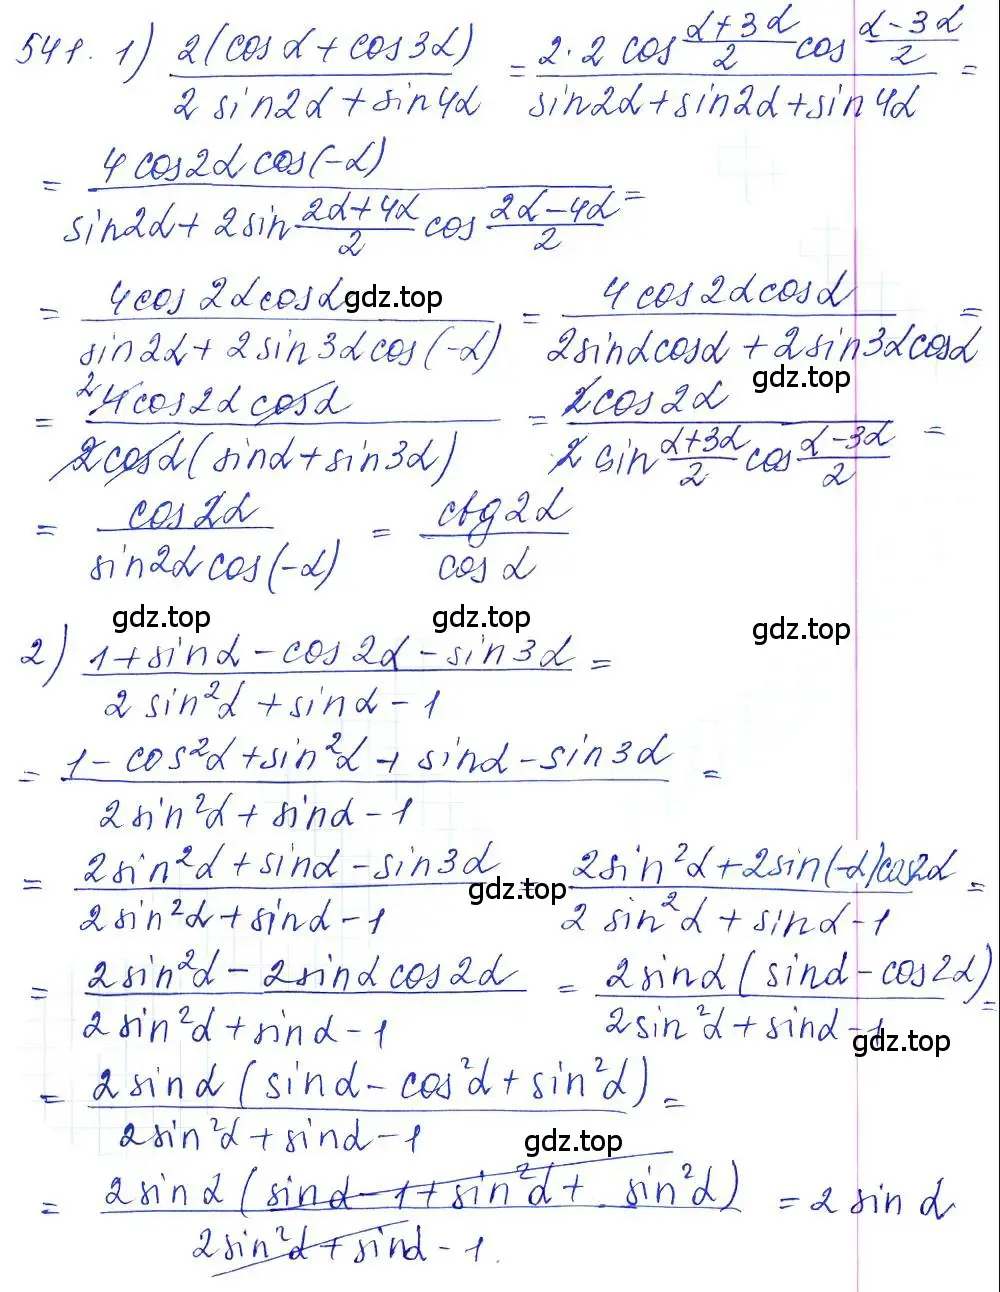 541. 1) 2(cosα + cos3α) / 2 sin2α + sin4α = 2·2 cos (α+3α)/2 cos (α−3α)/2 / sin2α + sin2α + sin4α =
= 4cos2α cos(−α) / sin2α + 2sin (2α+4α)/2 cos (2α−4α)/2 =
= 4cos2αcosα / sin2α + 2sin3αcos(−α) = 4cos2αcosα / 2sinαcosα + 2sin3αcosα =
gdz.top
gdz.top
= 2 4cos2α cosα / 2cosα(sinα + sin3α) = 2cos2α / 2 sin (α+3α)/2 cos (α−3α)/2 =
= cos2α / sin2α cos(−α) = ctg2α / cosα
gdz.top
gdz.top
2) 1 + sinα − cos2α − sin3α / 2 sin²α + sinα − 1 =
= 1 − cos²α + sin²α + sinα − sin3α / 2sin²α + sinα − 1 =
= 2sin²α + sinα − sin3α / 2sin²α + sinα − 1 = 2sin²α + 2sin(−α)cos2α / 2 sin²α + sinα − 1 =
gdz.top
= 2sin²α − 2sinα cos2α / 2sin²α + sinα − 1 = 2sinα(sinα − cos2α) / 2sin²α + sinα − 1 =
gdz.top
= 2sinα(sinα − cos²α + sin²α) / 2sin²α + sinα − 1 =
gdz.top
= 2sinα(sinα − 1 + sin²α + sin²α) / 2sin²α + sinα − 1. = 2 sinα